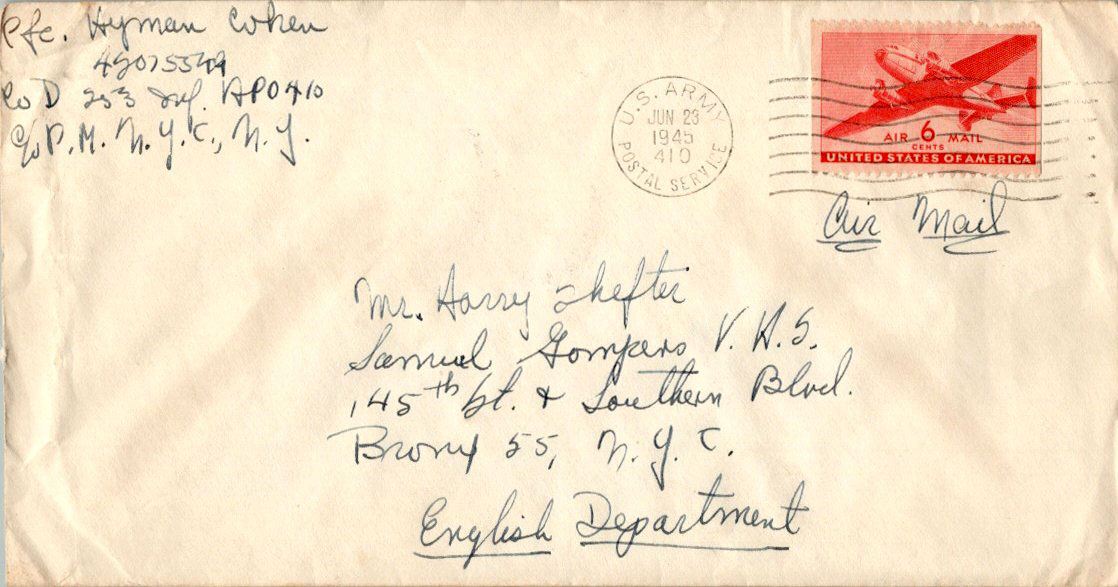 Pfc. Hyman Cohen
Co D 253 Inf. APO 410
c/o P.M. N.Y.C., N.Y.
U.S. ARMY
JUN 23
1945
410
POSTAL SERVICE
AIR 6 MAIL
CENTS
UNITED STATES OF AMERICA
Air Mail
Mr. Harry Shefter
Samuel Gompers V.H.S.
145th St. & Southern Blvd.
Bronx 55, N.Y.C.
English Department